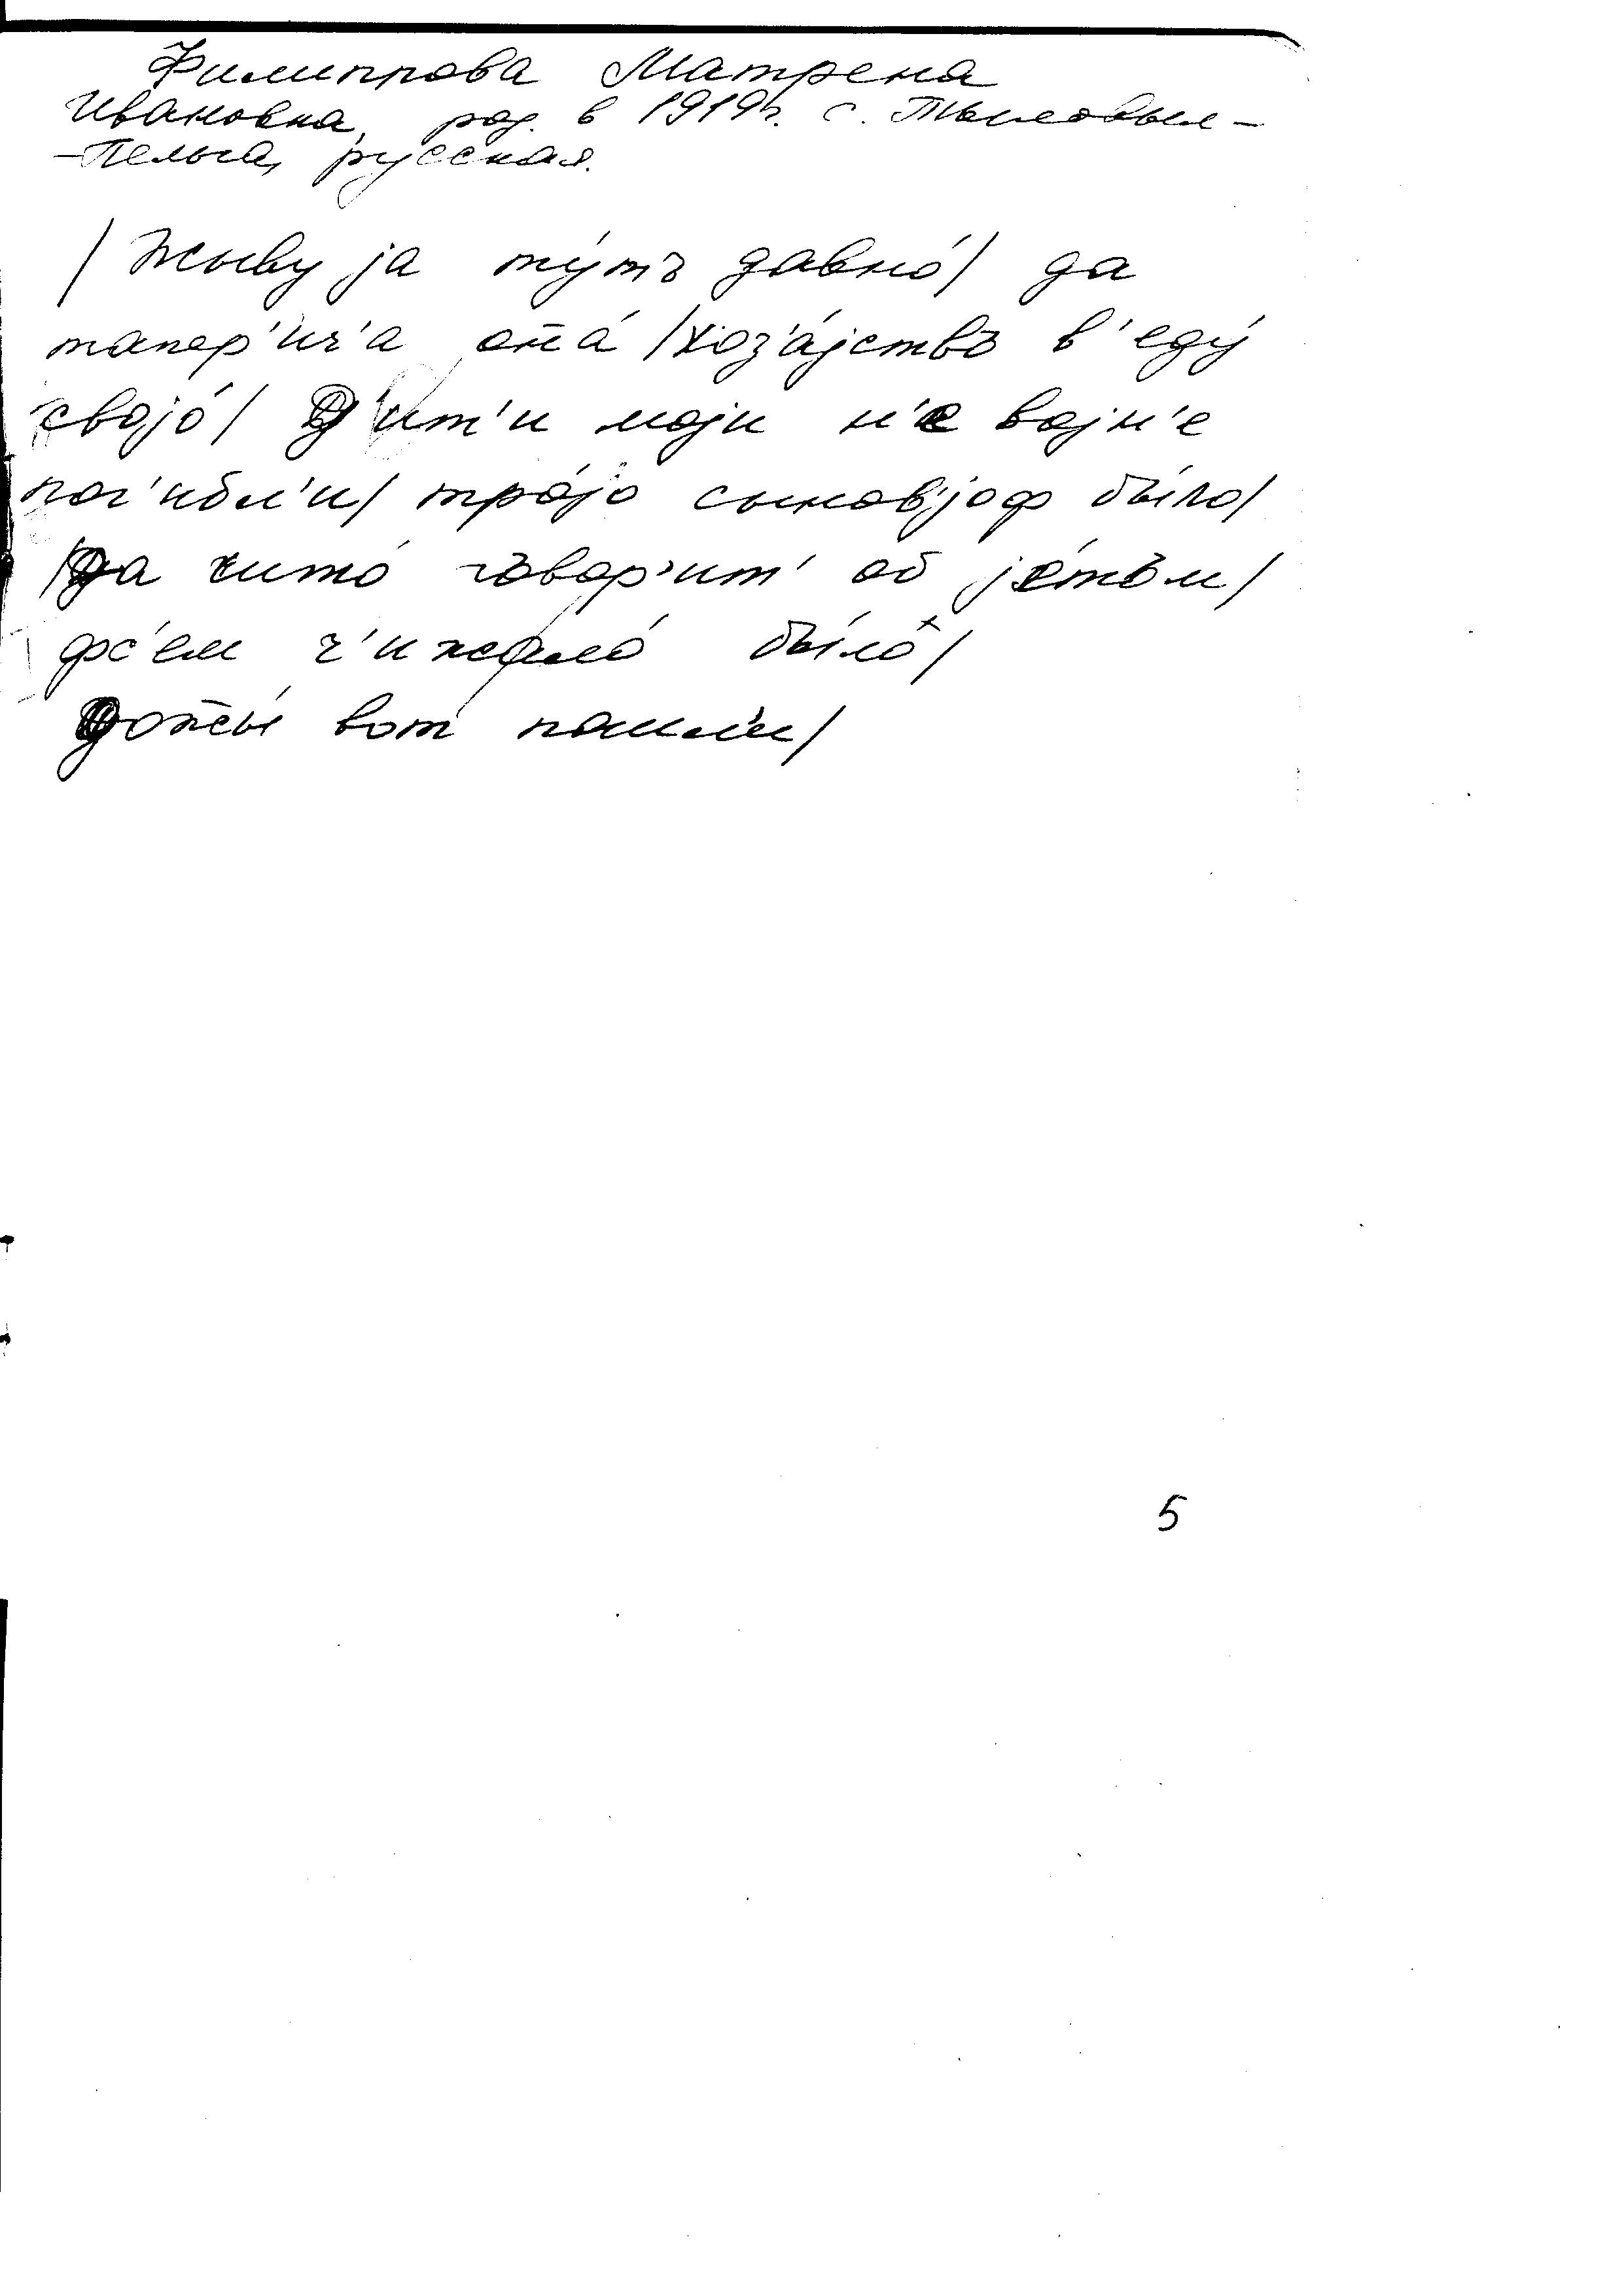 Филиппова Матрена
Ивановна, род. в 1919г. с. Тыловыл-
-Пельга, русская.
/ Жыву jа ту́тъ давно́/ да
тапер'ич'а она́ /хоз'а́jствъ в'еду́
своjо́/ Д'ит'и моjи н'е воjн'е
пог'ибл'и/ тро́jо сыновjоф бы́ло/
/да што́ говор'ит' об jе́тъм/
фс'ем ч'ижало́ бы́ло/
дожы́ вот пашл'и́/
5